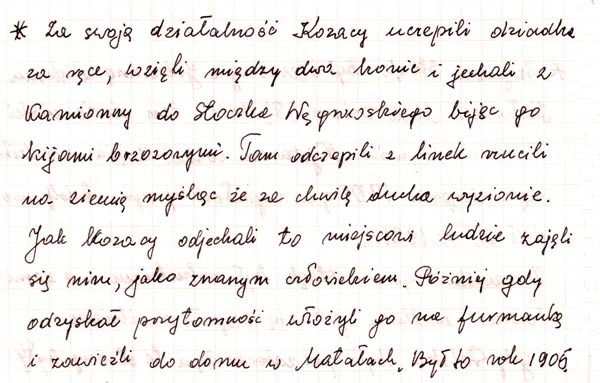 * Za swoją działalność Kozacy uczepili dziadka
za ręce, wzięli między dwa konie i jechali z
Kamionny do Stoczka Węgrowskiego bijąc go
kijami brzozowymi. Tam odczepili z linek rzucili
na ziemię myśląc że za chwilę ducha wyzionie.
Jak Kozacy odjechali to miejscowi ludzie zajęli
się nim, jako znanym człowiekiem. Później gdy
odzyskał przytomność włożyli go na furmankę
i zawieźli do domu w Matałach. Był to rok 1906.